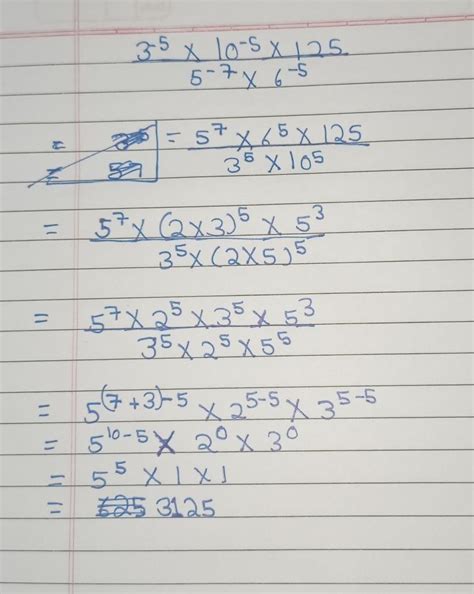 3⁻⁵ × 10⁻⁵ × 125
5⁻⁷ × 6⁻⁵
= 5⁷ × 6⁵ × 125
3⁵ × 10⁵
= 5⁷ × (2×3)⁵ × 5³
3⁵ × (2×5)⁵
= 5⁷ × 2⁵ × 3⁵ × 5³
3⁵ × 2⁵ × 5⁵
= 5⁽⁷⁺³⁾⁻⁵ × 2⁵⁻⁵ × 3⁵⁻⁵
= 5¹⁰⁻⁵ × 2⁰ × 3⁰
= 5⁵ × 1 × 1
= 625 3125